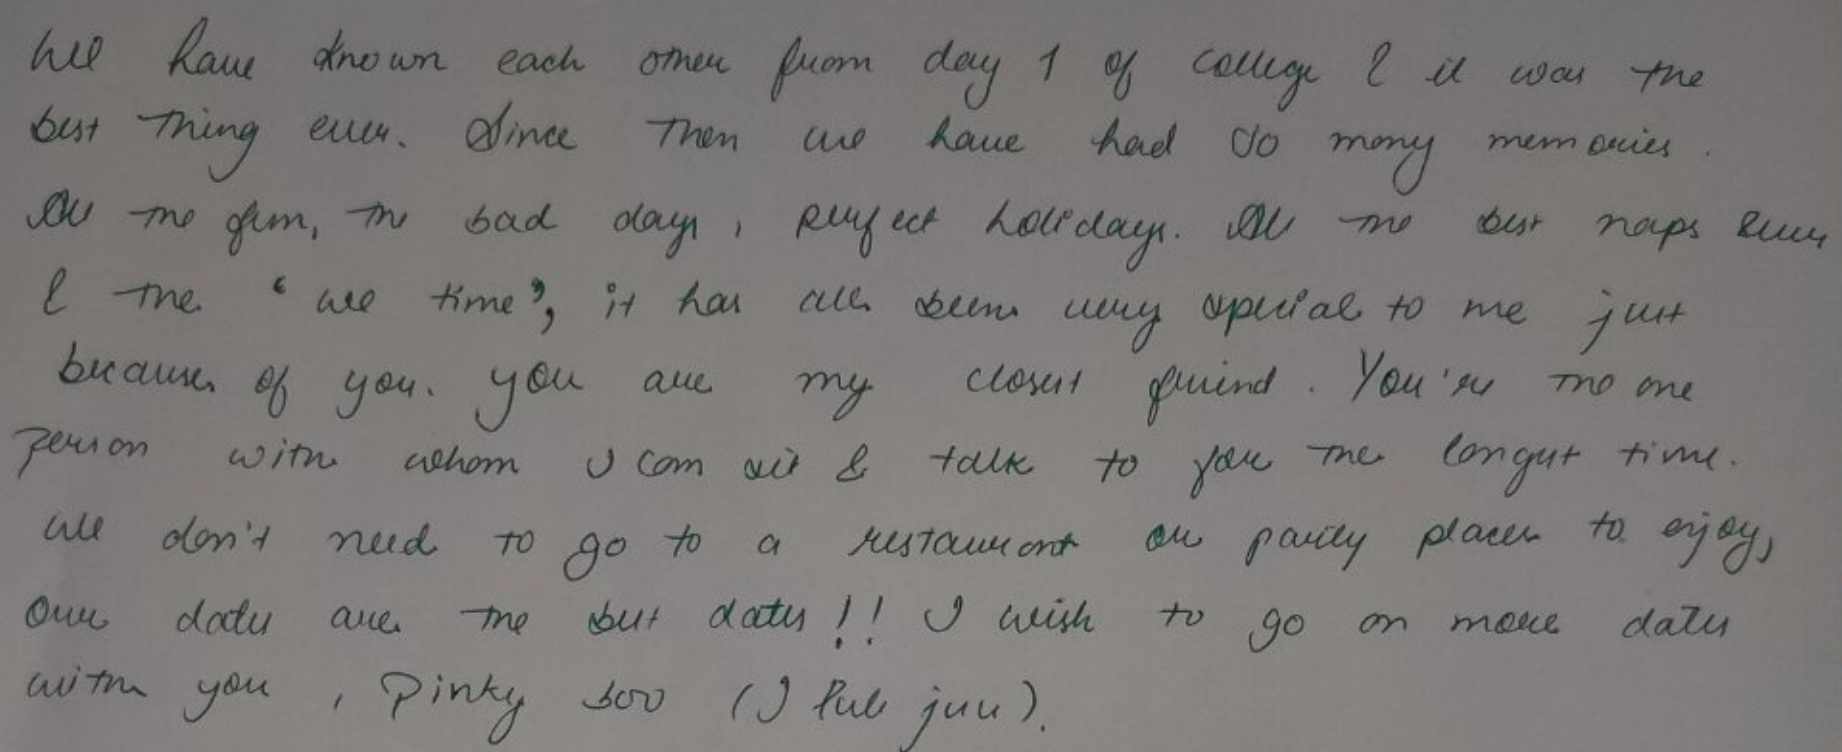 We have known each other from day 1 of college & it was the
best thing ever. Since then we have had so many memories.
All the fun, the bad days, perfect holidays. All the best naps ever
& the ‘we time’, it has all been very special to me just
because of you. you are my closest friend. You're the one
person with whom I can sit & talk to you the longest time.
we don't need to go to a restaurant or party places to enjoy,
Our dates are the best dates!! I wish to go on more dates
with you, Pinky boo (I lub juu).